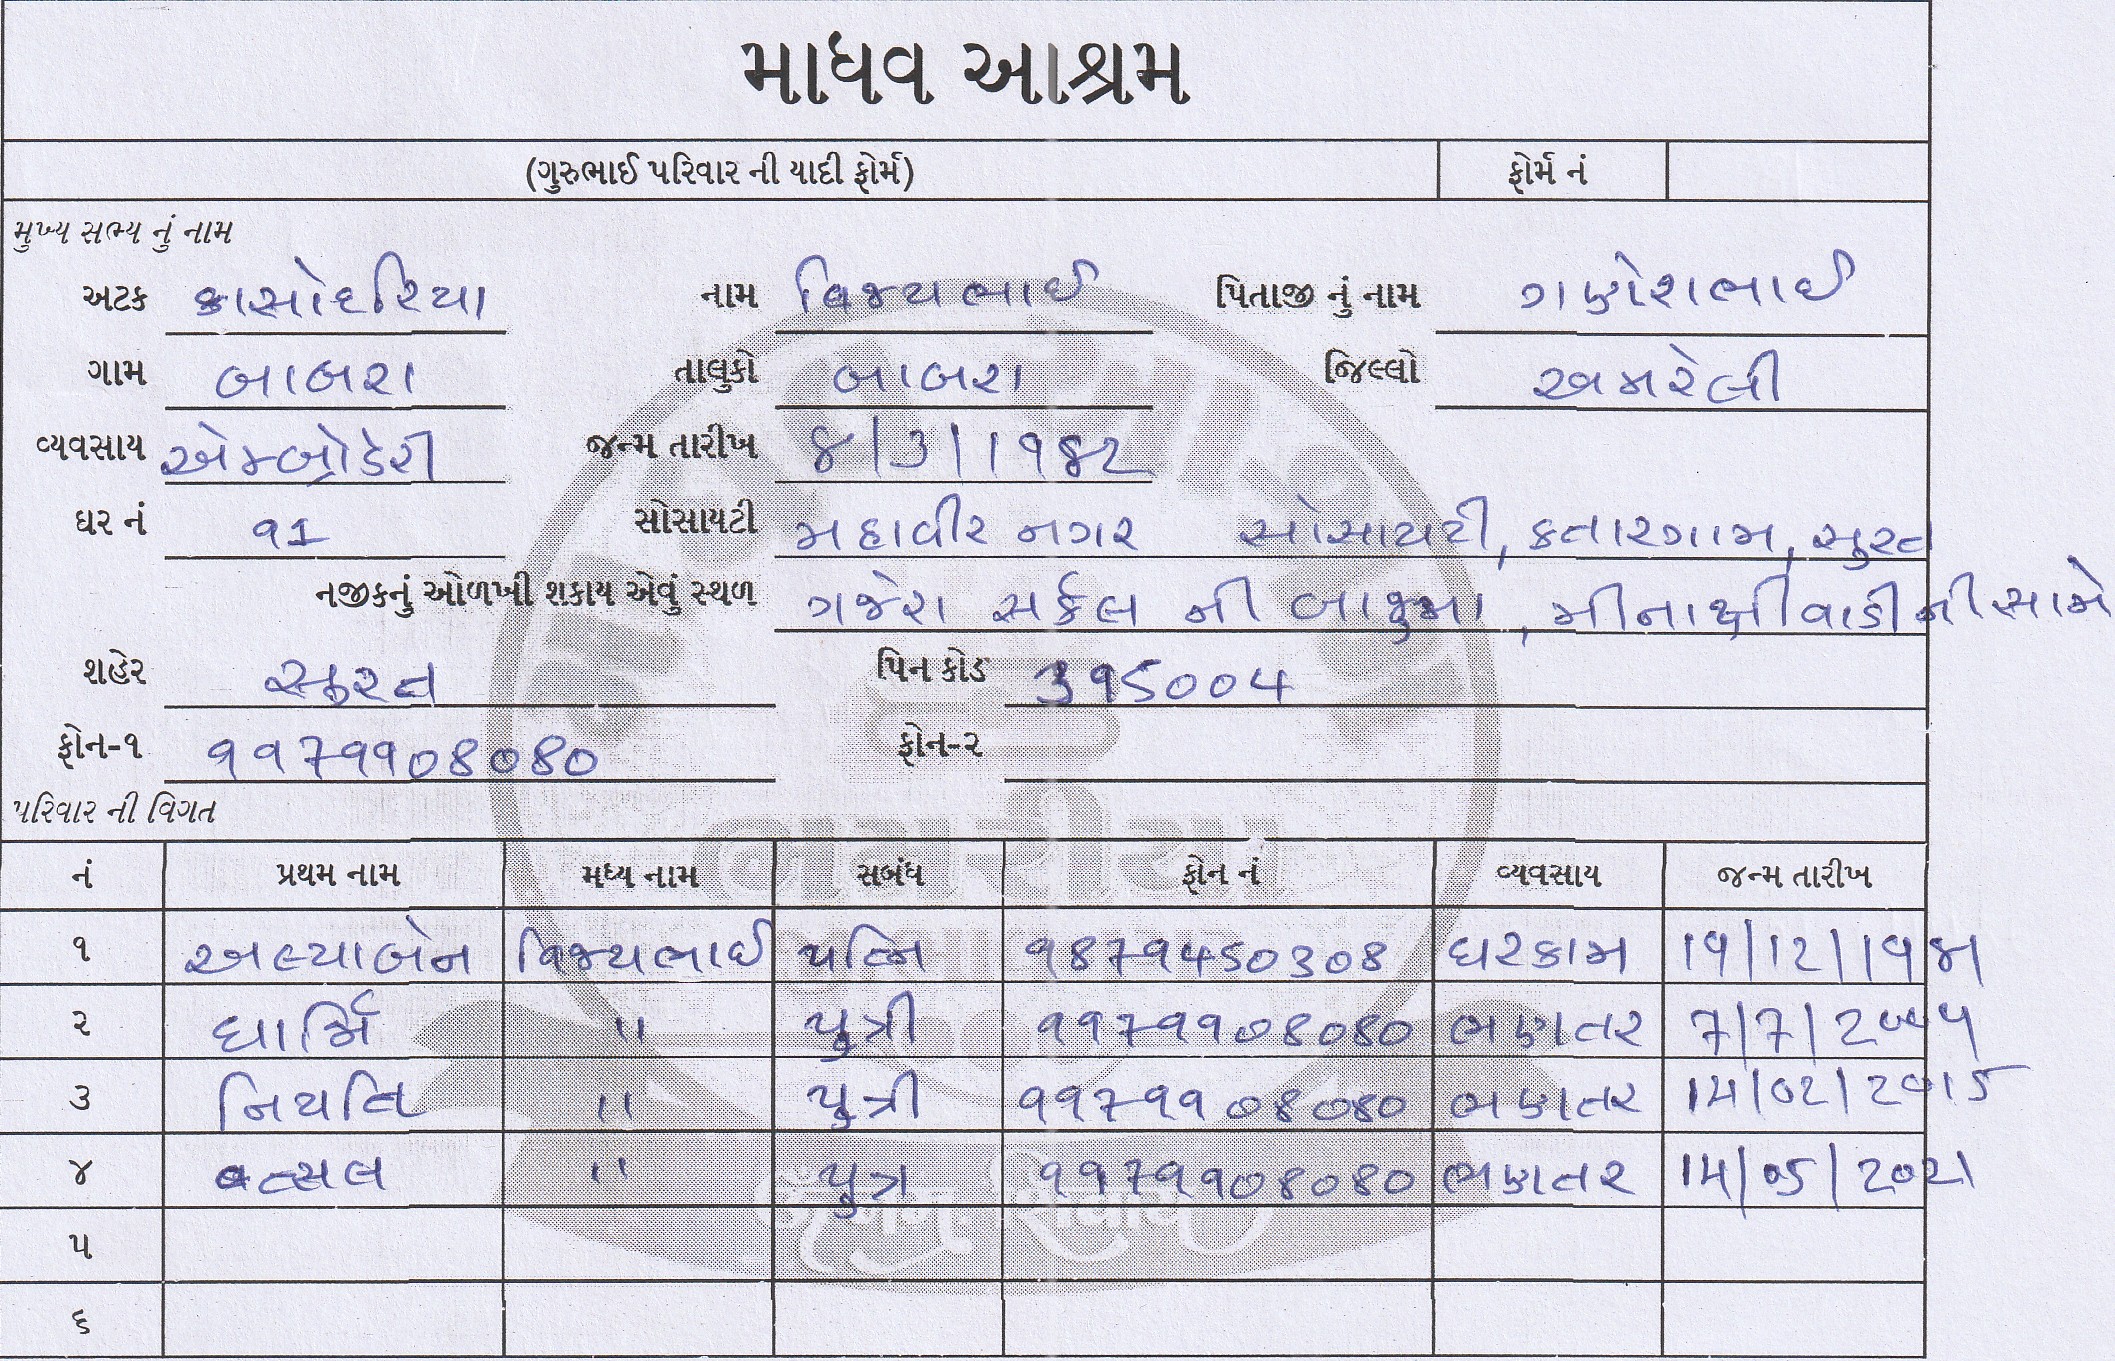 માધવ આશ્રમ
(ગુરુભાઈ પરિવાર ની યાદી ફોર્મ) ફોર્મ નં
મુખ્ય સભ્ય નું નામ
અટક કાસોદરિયા નામ વિજયભાઈ પિતાજી નું નામ ગણેશભાઈ
ગામ બાબરા તાલુકો બાબરા જિલ્લો અમરેલી
વ્યવસાય એમ્બ્રોડેરી જન્મ તારીખ ૪/3/1982
ઘર નં 91 સોસાયટી મહાવીર નગર સોસાયટી, કતારગામ, સુરત
નજીકનું ઓળખી શકાય એવું સ્થળ ગજેરા સર્કલ ની બાજુમા, મીનાક્ષીવાડી ની સામે
શહેર સુરત પિન કોડ 395004
ફોન-૧ 9979908080 ફોન-૨
પરિવાર ની વિગત
નં પ્રથમ નામ મધ્ય નામ સબંધ ફોન નં વ્યવસાય જન્મ તારીખ
૧ અલ્પાબેન વિજયભાઈ પત્નિ 9879450308 ઘરકામ
૨ ધાર્મિ " પુત્રી 9979908080 ભણતર 7/7/2005
૩ નિયતિ " પુત્રી 9979908080 ભણતર
૪ વત્સલ " પુત્ર 9979908080 ભણતર 14/05/2021
૫
૬